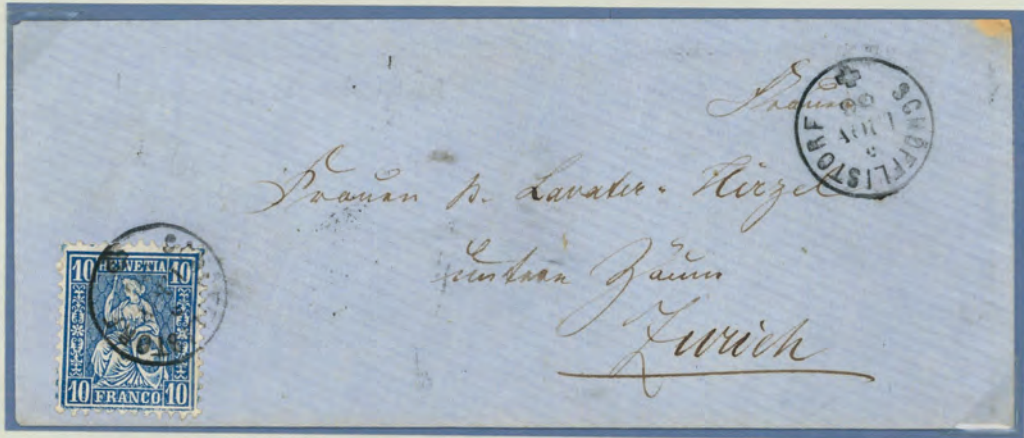 Frauen
SCHÖFFLISTORF
AOUT
Frauen p. Lavater-Hirzel
untere Zäune
Zürich
10 HELVETIA 10
10 FRANCO 10